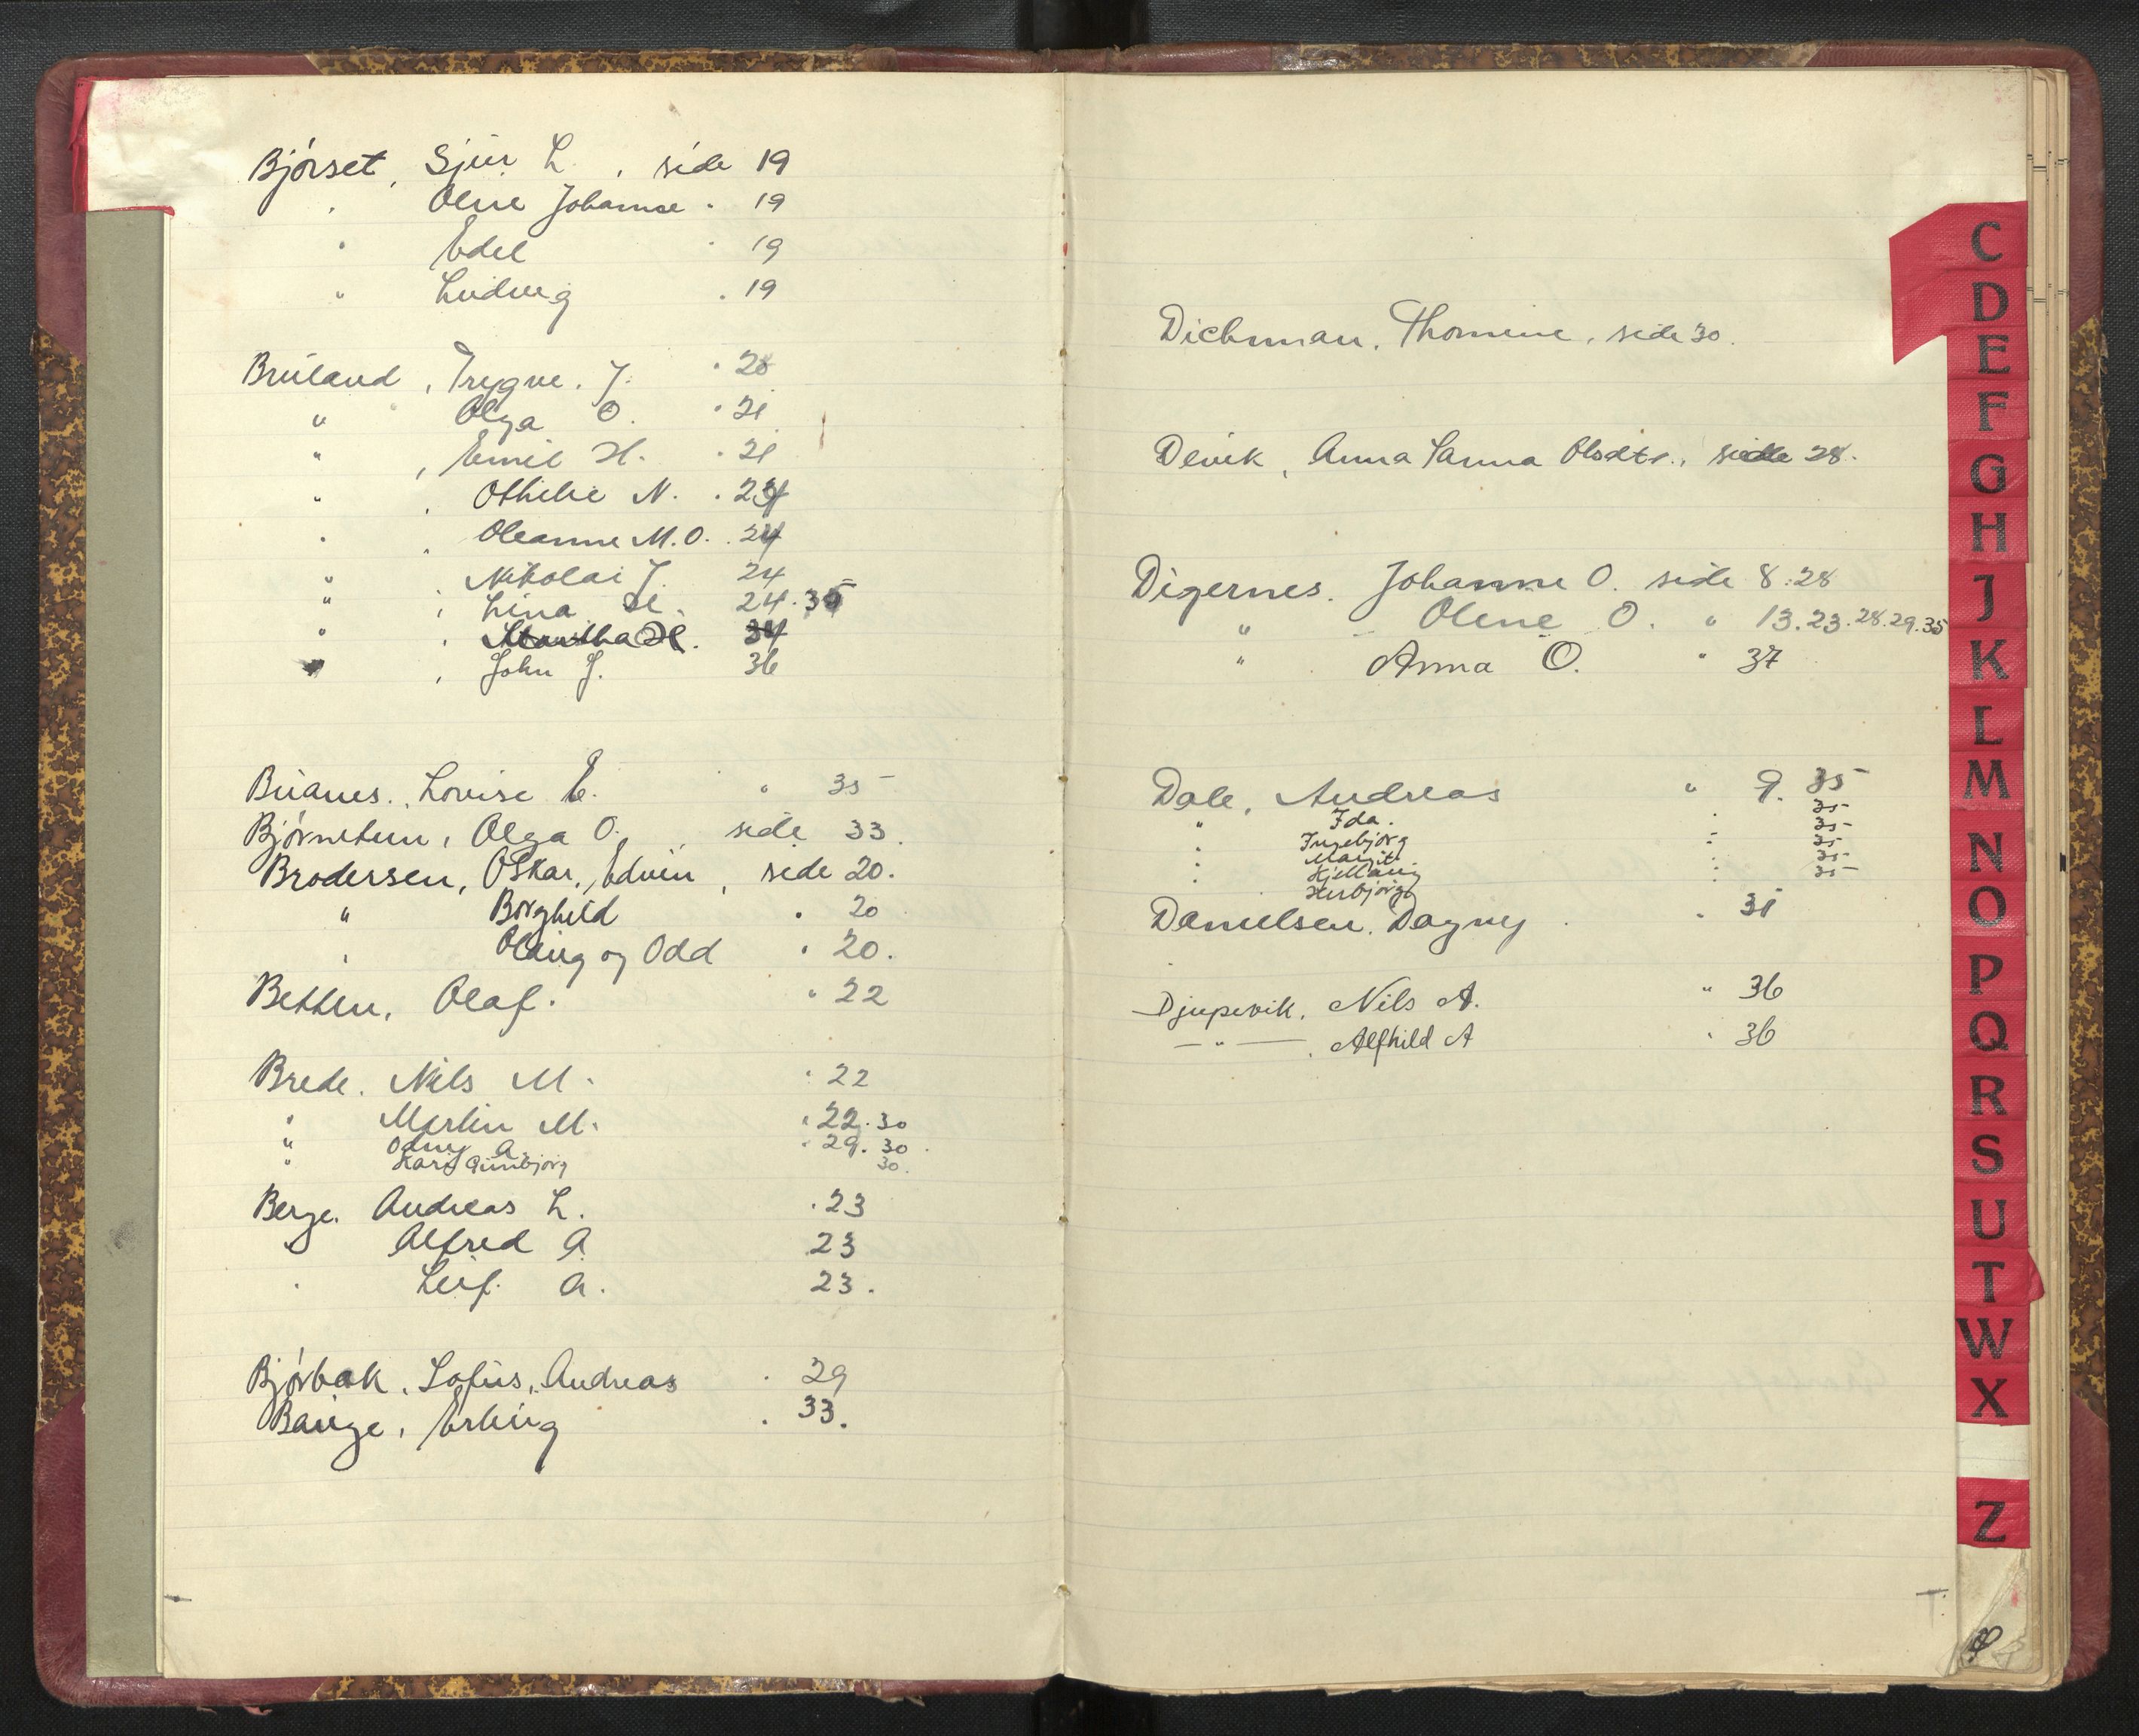 Bjórset, Sjur L., side 19
" Oline Johanne " 19
" Edel " 19
" Ludvig " 19
Bruland, Trygve. J. " 28
" Olga O. " 21
" , Emil H. " 21
" , Othilie N. " 24
" , Oleanne M.O. " 24
" , Nikolai J. 24
" , Lina H. 24. 35
" , Martha H. 34
" , John J. 36
Buanes., Lovise E. " 35
Bjórnetun, Olga O., side 33.
Brodersen, Oskar, Edvin, side 20.
" Borghild " 20
" Olaug og Odd " 20.
Betten, Olaf. " 22
Brede. Nils M. " 22
" Martin M. " 22. 30
" Odny A. " 29. 30
" Kari Gunbjörg 30.
Berge. Andreas L. " 23
" Alfred A 23
" Leif. A. 23.
Bjórbak, Sofus, Andreas " 29
Bauge, Erling " 33.
Dichman. Thomine, side 30.
Devik, Anna Sanna Olsdtr., side 28.
Digernes. Johanne O. side 8.28
" Oline O. " 13.23.28.29.35
" Anna O. " 37
Dale, Andreas " 9. 35
" Ida. " 35
" Ingebjörg " 35
" Margit " 35
" Kjellaug " 35
Herbjörg 35
Danielsen. Dagny " 31
Djupevik, Nils A. " 36
— " — , Alfhild A " 36
C
D
E
F
G
H
J
K
L
M
N
O
P
Q
R
S
U
T
W
X
Z